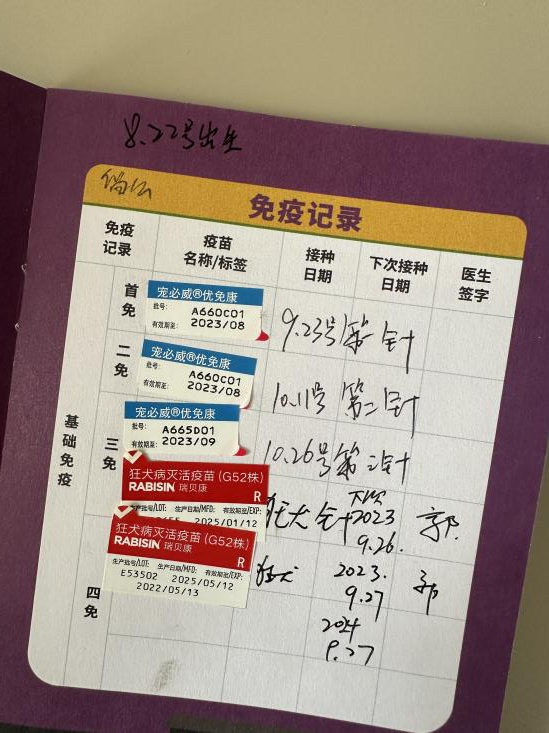 8.22号出生
免疫记录
免疫记录
疫苗名称/标签
接种日期
下次接种日期
医生签字
基础免疫
首免
宠必威®优免康
批号: A660C01
有效期至: 2023/08
9.23号第一针
二免
宠必威®优免康
批号: A660C01
有效期至: 2023/08
10.11号 第二针
三免
宠必威®优免康
批号: A665D01
有效期至: 2023/09
10.26号第三针
狂犬病灭活疫苗(G52株)
RABISIN 瑞贝康
R
生产批号/LOT: 生产日期/MFD: 有效期至/EXP:
2025/01/12
狂犬针
下次
2023
9.26.
郭.
四免
狂犬病灭活疫苗(G52株)
RABISIN 瑞贝康
R
生产批号/LOT: 生产日期/MFD: 有效期至/EXP:
E53502 2025/05/12
2022/05/13
狂犬
2023.
9.27
郭
2024
9.27